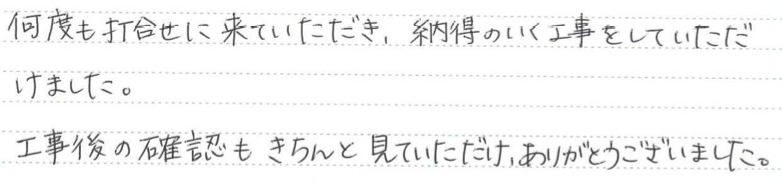 何度も打合せに来ていただき、納得のいく工事をしていただ
けました。
工事後の確認もきちんと見ていただけ、ありがとうございました。